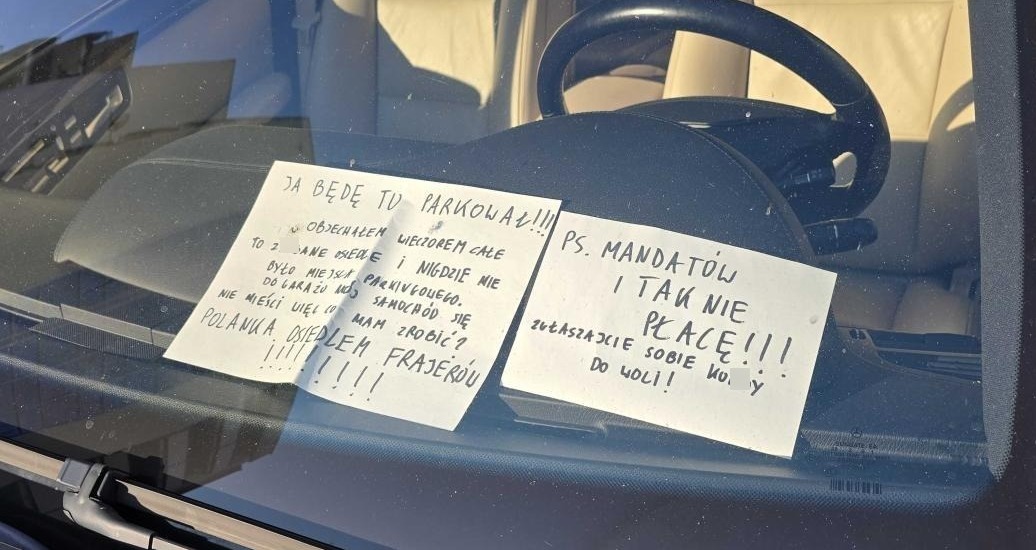 JA BĘDĘ TU PARKOWAŁ!!!
OBJECHAŁEM WIECZOREM CAŁE
TO OSIEDLE I NIGDZIE NIE
BYŁO MIEJSCA PARKINGOWEGO.
DO GARAŻU MÓJ SAMOCHÓD SIĘ
NIE MIEŚCI WIĘC CO MAM ZROBIĆ?
POLANKA OSIEDLEM FRAJERÓW
!!!!!!!!!
PS. MANDATÓW
I TAK NIE
PŁACĘ!!!
ZGŁASZAJCIE SOBIE
DO WOLI!